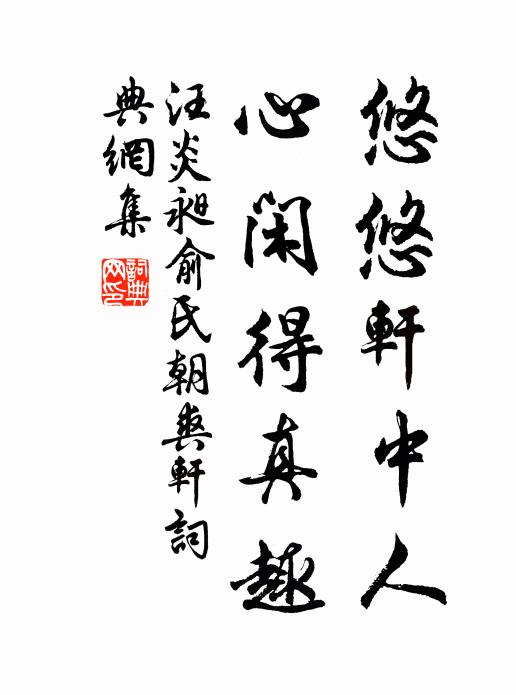 悠悠軒中人
心閑得真趣
汪炎昶俞氏朝爽軒詞
典網集
詞典网印